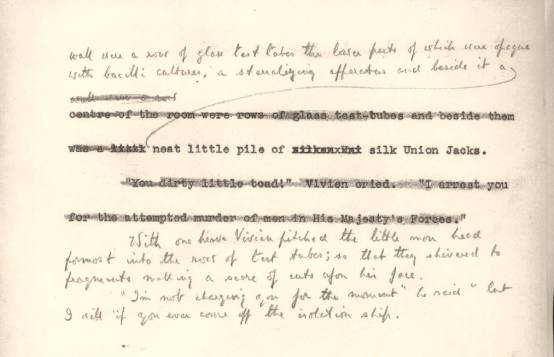 wall were a row of glass test tubes the lower parts of which were opaque
with bacilli cultures, a sterilizing apparatus and beside it a
wall were a row
centre of the room were rows of glass test-tubes and beside them
was a little neat little pile of silken Uni silk Union Jacks.
"You dirty little toad!" Vivien cried. "I arrest you
for the attempted murder of men in His Majesty's Forces."
With one heave Vivien pitched the little man head
formost into the rows of test tubes; so that they shivered to
fragments making a score of cuts upon his face.
"I'm not charging you for the moment" he said "but
I will if you ever come off the isolation ship.